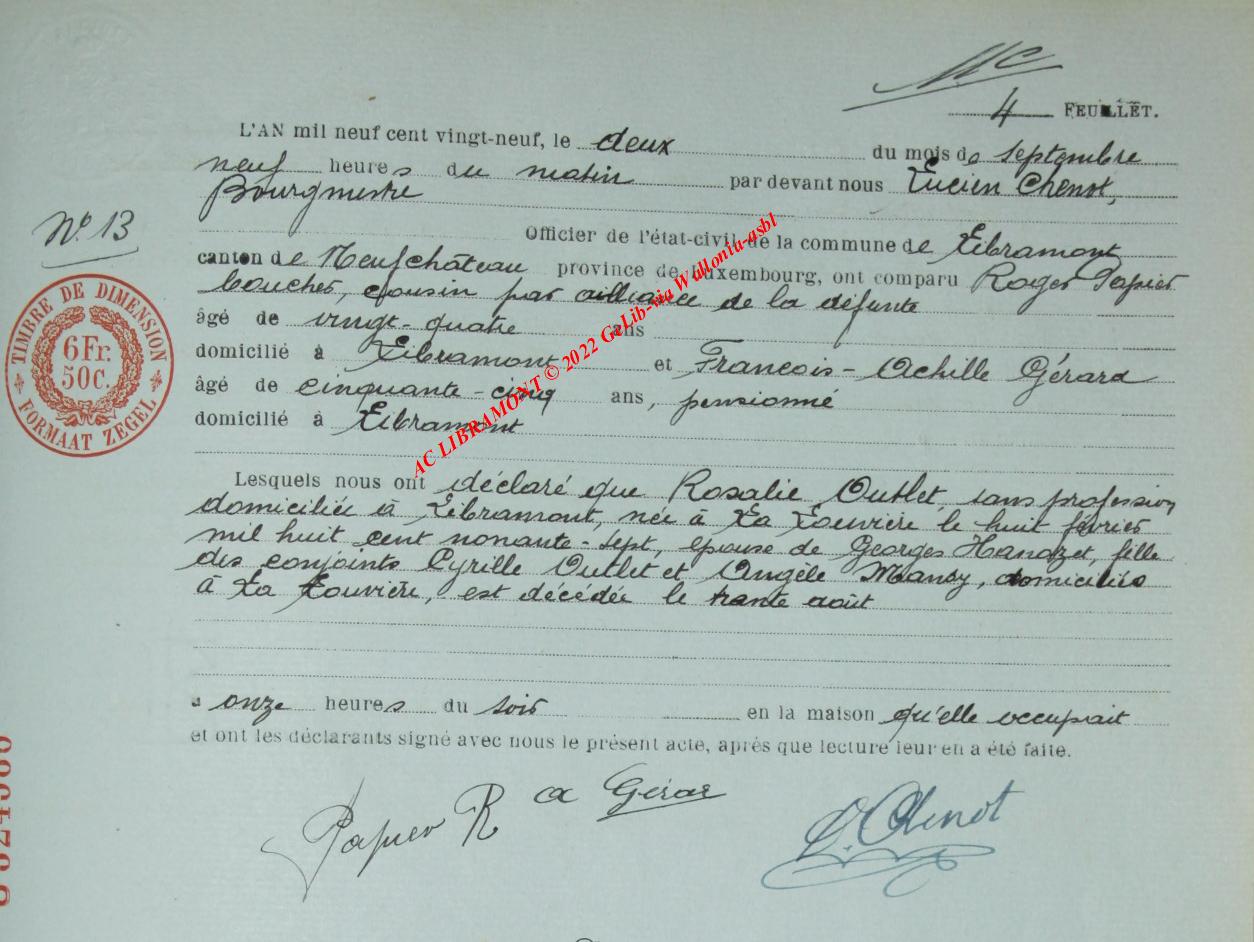 Mc
4 FEUILLET.
L'AN mil neuf cent vingt-neuf, le deux du mois de septembre
neuf heures du matin par devant nous Lucien Chenot,
Bourgmestre
Nº 13
Officier de l'état-civil de la commune de Libramont
canton de Neufchâteau province de Luxembourg, ont comparu Roger Papier
boucher, cousin par alliance de la défunte
âgé de vingt-quatre ans
domicilié à Libramont et Francois-Achille Gérard
âgé de cinquante-cinq ans, pensionné
domicilié à Libramont
TIMBRE DE DIMENSION
6 Fr.
50 C.
FORMAAT ZEGEL
AC LIBRAMONT © 2022 GeLib-via Wallonia-asbl
Lesquels nous ont déclaré que Rosalie Outlet, sans profession
domiciliée à Libramont, née à La Louvière le huit février
mil huit cent nonante-sept, épouse de Georges Handzet, fille
des conjoints Cyrille Outlet et Angèle Mansy, domiciliés
à La Louvière, est décédée le trente août
à onze heures du soir en la maison qu'elle occupait
et ont les déclarants signé avec nous le présent acte, après que lecture leur en a été faite.
Papier R a Gérar L. Chenot